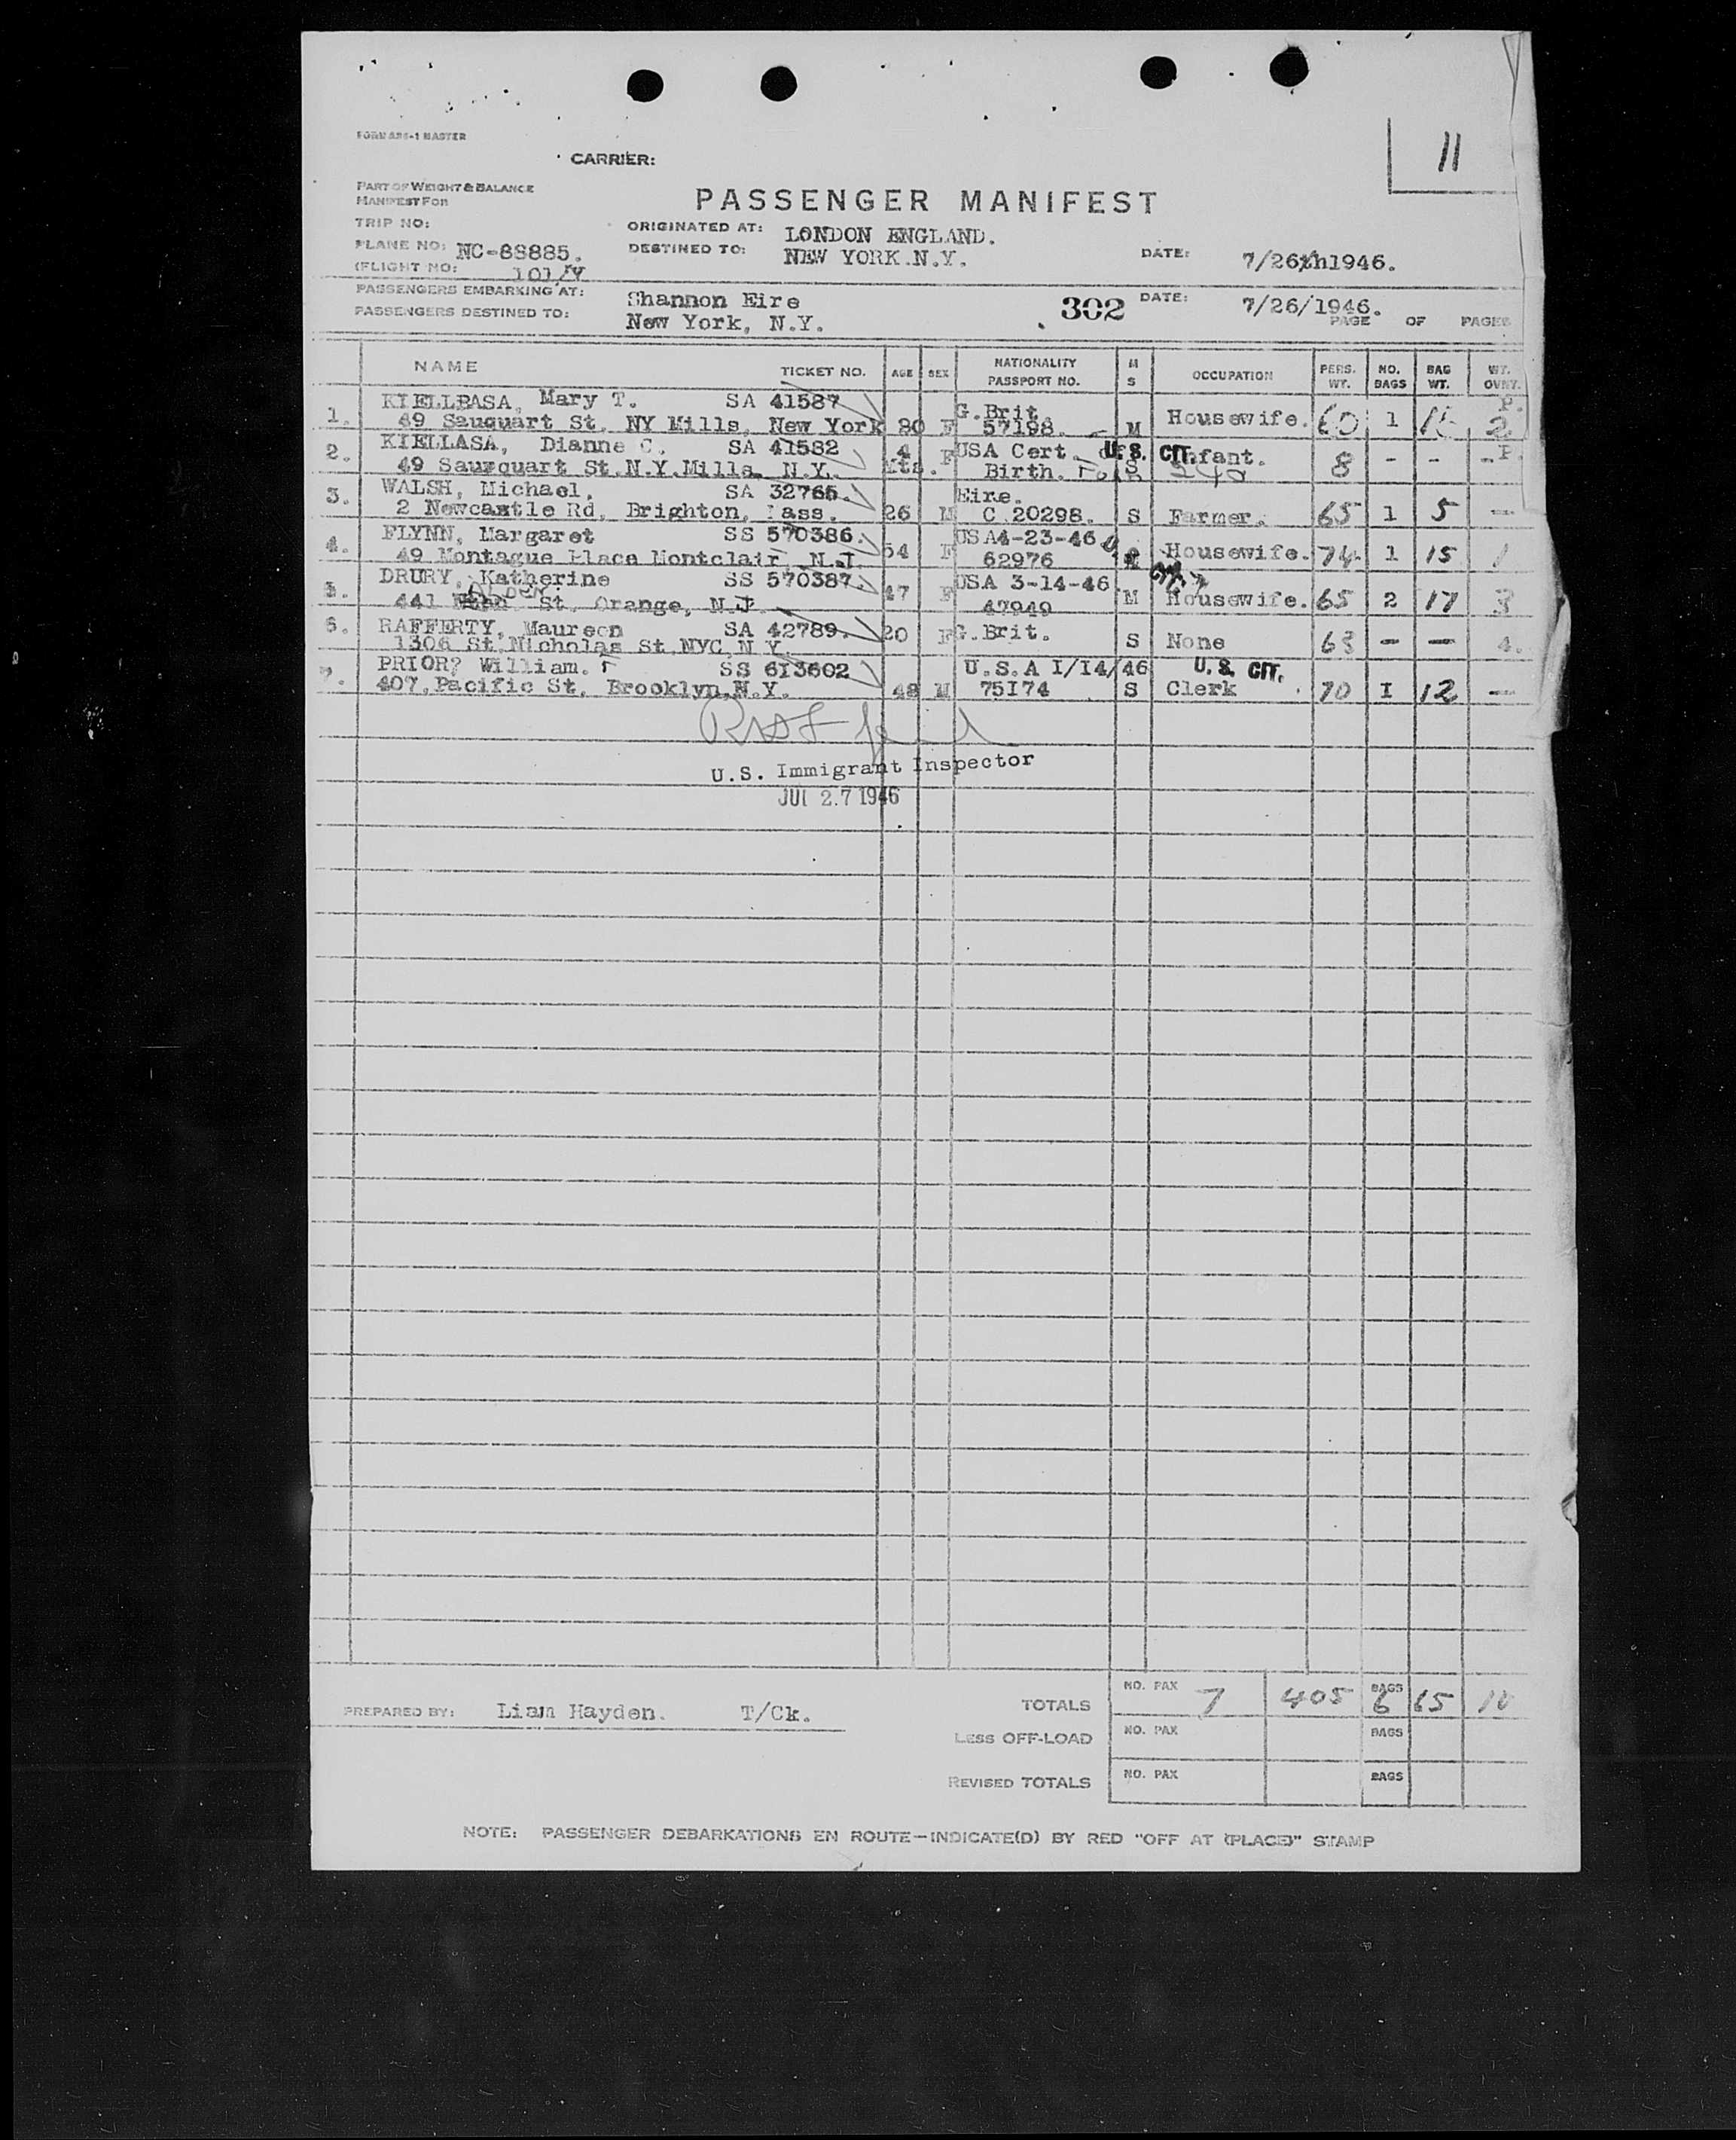 FORM ASS-1 MASTER
CARRIER:
11
PART OF WEIGHT & BALANCE
MANIFEST FOR
PASSENGER MANIFEST
TRIP NO:
ORIGINATED AT: LONDON ENGLAND.
PLANE NO: NC-88885.
DESTINED TO: NEW YORK.N.Y.
DATE: 7/26th1946.
(FLIGHT NO: 101/Y
PASSENGERS EMBARKING AT: Shannon Eire
302
DATE: 7/26/1946.
PASSENGERS DESTINED TO: New York, N.Y.
PAGE OF PAGES
NAME TICKET NO. AGE SEX NATIONALITY PASSPORT NO. M S OCCUPATION PERS. WT. NO. BAGS BAG WT. WT. OVNT.
1. KIELLBASA, Mary T. SA 41587 G.Brit. P.
49 Sauquart St, NY Mills, New York F 57198. M Housewife. 60 1 2
2. KIELLASA, Dianne C. SA 41582 4 F USA Cert. of U.S. CIT. Infant. P.
49 Sauzquart St.N.Y.Mills, N.Y. Mts. Birth. S 8 - - -
3. WALSH, Michael, SA 32765. Eire.
2 Newcastle Rd, Brighton, Mass. 26 M C 20298. S Farmer. 65 1 5 —
4. FLYNN, Margaret SS 570386. USA4-23-46
49 Montague Place Montclair, N.J. 54 F 62976 Housewife. 74 1 15 1
DRURY, Katherine SS 570387. USA 3-14-46
ALDEN
441 St, Orange, N.J. 47 F 47949 M Housewife. 65 2 17 3
6. RAFFERTY, Maureen SA 42789. 20 F G.Brit. S None 63 — — 4.
1306 St.Nicholas St,NYC,N.Y.
PRIOR? William. SS 613602 U.S.A I/I4/46 U.S. CIT.
407,Pacific St, Brooklyn,N.Y. 48 M 75I74 S Clerk 70 I 12 —
U.S. Immigrant Inspector
JUL 27 1946
PREPARED BY: Liam Hayden. T/Ck.
TOTALS NO. PAX 7 405 BAGS 6 65 10
LESS OFF-LOAD NO. PAX BAGS
REVISED TOTALS NO. PAX BAGS
NOTE: PASSENGER DEBARKATIONS EN ROUTE—INDICATE(D) BY RED "OFF AT (PLACE)" STAMP